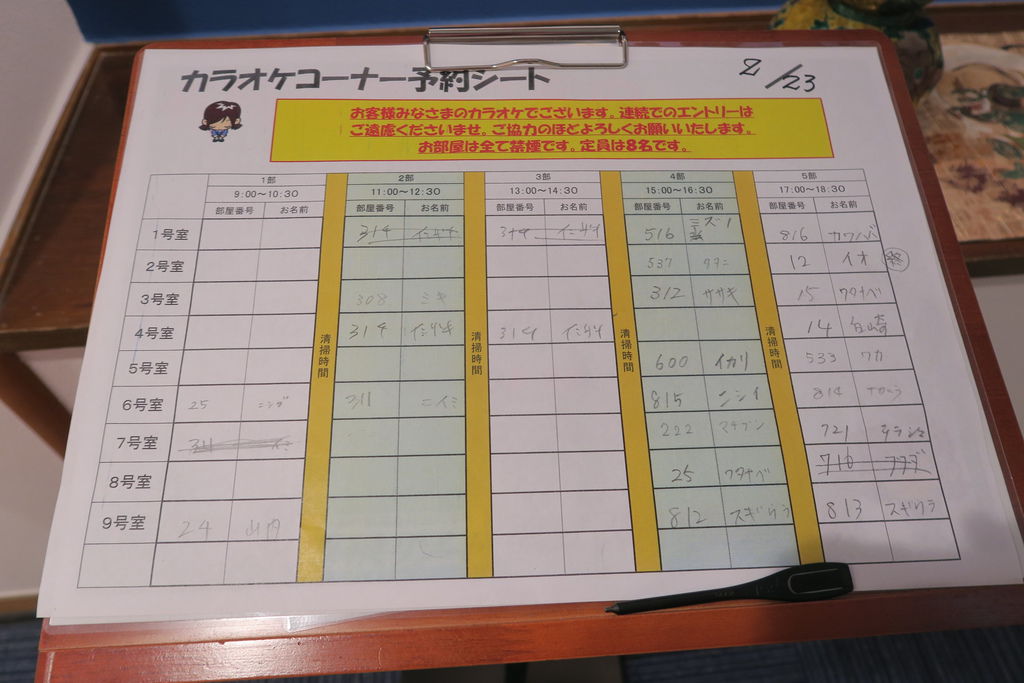 カラオケコーナー予約シート 2/23
お客様みなさまのカラオケでございます。連続でのエントリーは
ご遠慮くださいませ。ご協力のほどよろしくお願いいたします。
お部屋は全て禁煙です。定員は8名です。
1部 2部 3部 4部 5部
9:00～10:30 11:00～12:30 13:00～14:30 15:00～16:30 17:00～18:30
部屋番号 お名前 部屋番号 お名前 部屋番号 お名前 部屋番号 お名前 部屋番号 お名前
1号室 314 314 516 ミズノ 816 カワバ
2号室 537 タナニ 12 イオ 終
3号室 308 ミキ 312 ササキ 15 ワタナベ
4号室 314 314 14
5号室 600 イカリ 533 ワカ
6号室 25 311 ニイミ 815 ニシイ 814
7号室 311 222 721
8号室 25 ワタナベ 710
9号室 24 山内 812 スギウラ 813 スギウラ
清掃時間 清掃時間 清掃時間 清掃時間